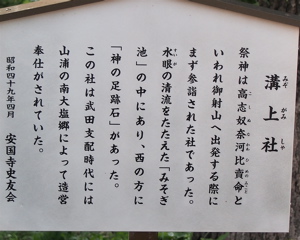 みぞ がみ
溝上社
祭神は高志奴奈河比賣命と
いわれ御射山へ出発する際に
まず参詣された社であった。
水眼の清流をたたえた「みそぎ
池」の中にあり、西の方に
「神の足跡石」があった。
この社は武田支配時代には
山浦の南大塩郷によって造営
奉仕がされていた。
昭和四十九年四月
安国寺史友会